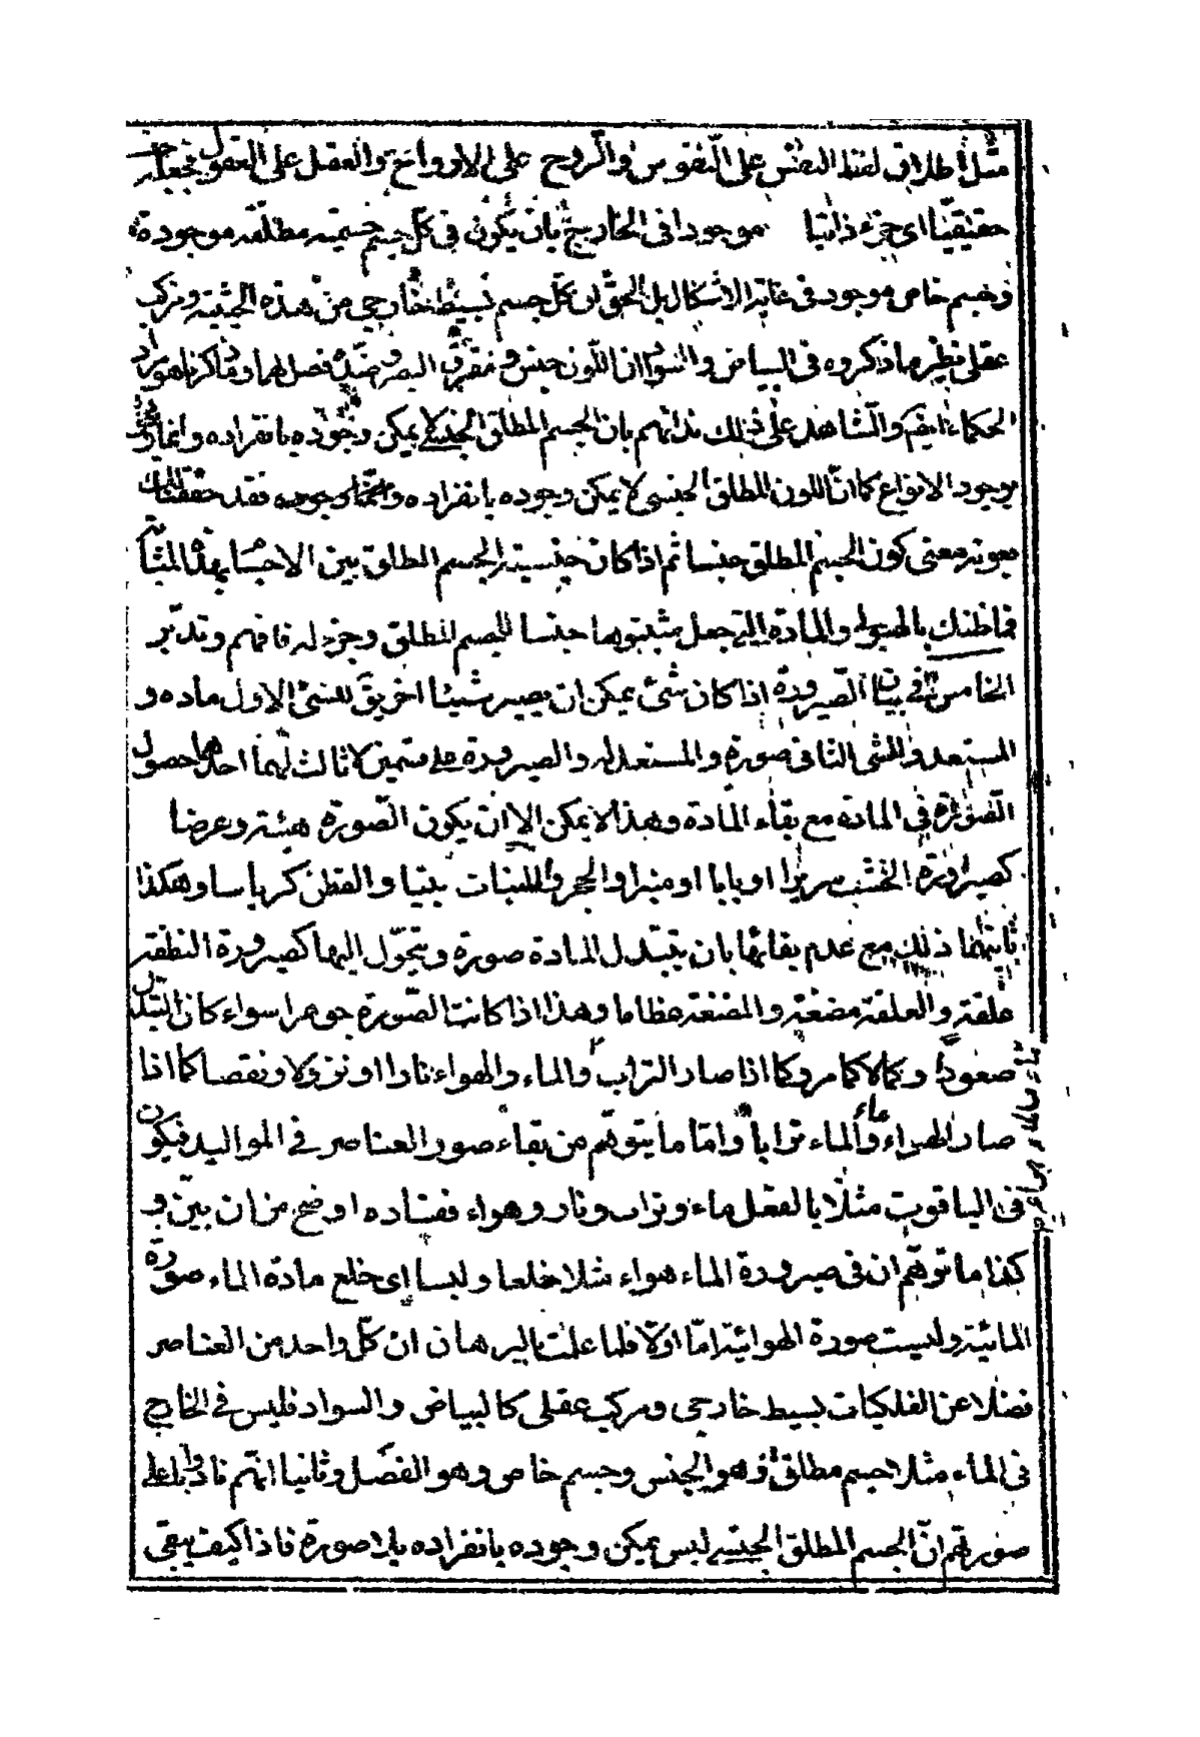 مثل اطلاق لفظ النفس على النفوس والروح على الارواح والعقل على العقول فجعله
حقيقيّا اى جزء ذاتيا موجودا فى الخارج بان يكون فى كل جسم جسميته مطلقه موجودة
وجسم خاص موجود فى غاية الاشكال بل الحقّ ان كل جسم بسيط خارجى من هذه الحيثية ومركب
عقلى نظير ما ذكروه فى البياض والسواد ان اللون جنس ومفرق البصر وضدّه فصل لهما وما ذكرناه مراد
الحكماء ايضا والشاهد على ذلك ندائهم بان الجسم المطلق الجنسى لا يمكن وجوده بانفراده وانما
وجود الانواع كما انّ اللون المطلق الجنسى لا يمكن وجوده بانفراده وانما وجوده فقد حققنا لك
معنى كون الجسم المطلق جنسا ثم اذا كان جنسية الجسم المطلق بين الاجسام بهذا المثابة
فما ظنك بالهيولى والمادة التى جعل مثبتوها جنسا للجسم المطلق وجزء له فافهم وتدبّر
الخامس فى بيان الصيرورة اذا كان شئ يمكن ان يصير شيئا اخر يق للشئ الاول ماده و
المستعد وللشى الثانى صورة والمستعد له والصيرورة على قسمين لا ثالث لهما احدهما حصول
الصورة فى المادة مع بقاء المادة وهذا لا يمكن الا ان يكون الصورة هيئة وعرضا
كصيرورة الخشب سريرا او بابا او منبرا والحجر واللبنات بيتا والقطن كرباسا وهكذا
ثانيهما ذلك مع عدم بقائها بان يتبدل المادة صورة ويتحوّل اليها كصيرورة النطفة
علقة والعلقة مضغة والمضغة عظاما وهذا اذا كانت الصورة جوهرا سواء كان التبدل
صعودا وكمالا كما مر وكما اذا صار التراب والماء والهواء نارا او نزولا ونقصا كما اذا
صار الهواء ماء والماء ترابا واما ما يتوهّم من بقاء صور العناصر فى المواليد فيكون
فى الياقوت مثلا بالفعل ماء وتراب ونار وهواء ففساده اوضح من ان يبيّن و
كذا ما توهّم ان فى صيرورة الماء هواء مثلا خلعا ولبسا اى خلع مادة الماء صورة
المائية ولبست صورة الهوائية امّا اولا فلما علمت بالبرهان ان كلّ واحد من العناصر
فضلا عن الفلكيات بسيط خارجى ومركب عقلى كالبياض والسواد فليس فى الخارج
فى الماء مثلا جسم مطلق وهو الجنس وجسم خاص وهو الفصل وثانيا انهم نادوا باعلى
صوتهم انّ الجسم المطلق الجنسى ليس يمكن وجوده بانفراده بلا صورة فاذا كيف يبقى